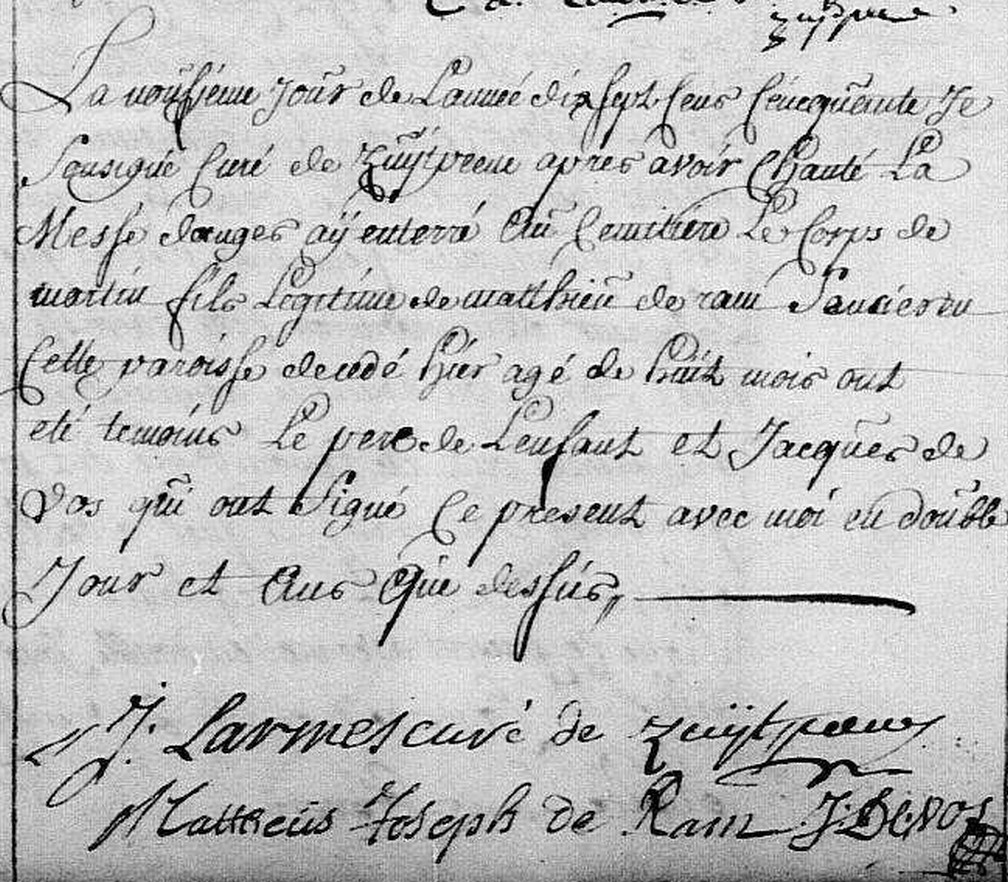 zuijtpeene
La nouffiéme Jour de L'année dix sept Cens Cincquante Je
Sousigné Curé de Zuÿtpeene apres avoir Chanté La
Messe d'anges aÿ enterré Au Cemitiere Le Corps de
martin fils Legitime de matthieu de ram
Cette paroisse decedé hier agé de huit mois ont
eté temoins Le pere de L'enfant et Jacques de
Vos qui ont Signé Ce present avec moi en double
Jour et Ans Que dessus,, 
J. Larmes curé de zuijtpeene
Mattheüs Joseph de Ram J. De vos